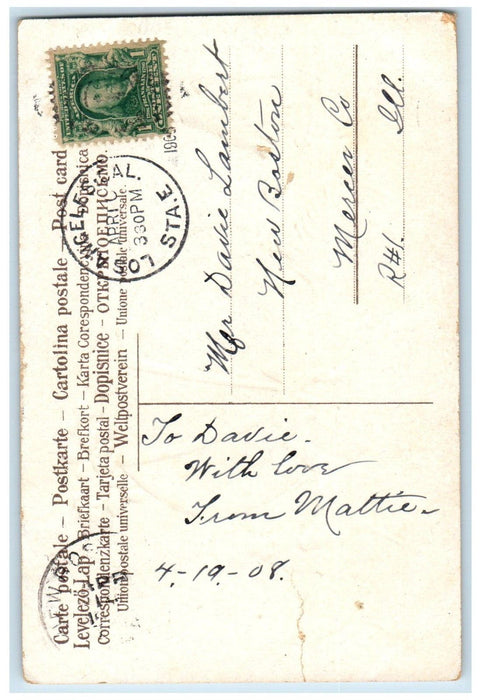 Carte postale – Postkarte – Cartolina postale – Post card
Levelező-Lap – Briefkaart – Brefkort – Karta Corespondencyjna – Dopisnica
Correspondenzkarte – Tarjeta postal – Dopisnice – ОТКРЫТОЕ ПИСЬМО.
Union postale universelle – Weltpostverein – Unione postale universale.
LOS ANGELES, CAL.
APR
330PM
STA.E.
190
Mr Davie Lambert
New Boston
Mercer Co
R#1. Ill.
To Davie.
With love
From Mattie.
4-19-08.